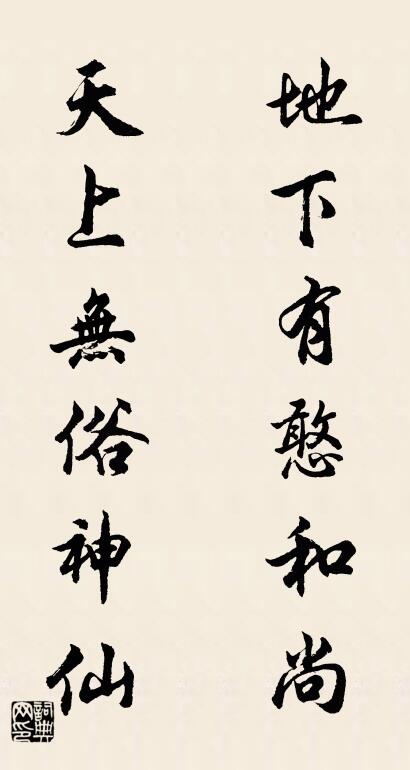 地下有憨和尚
天上無俗神仙
詞典网印